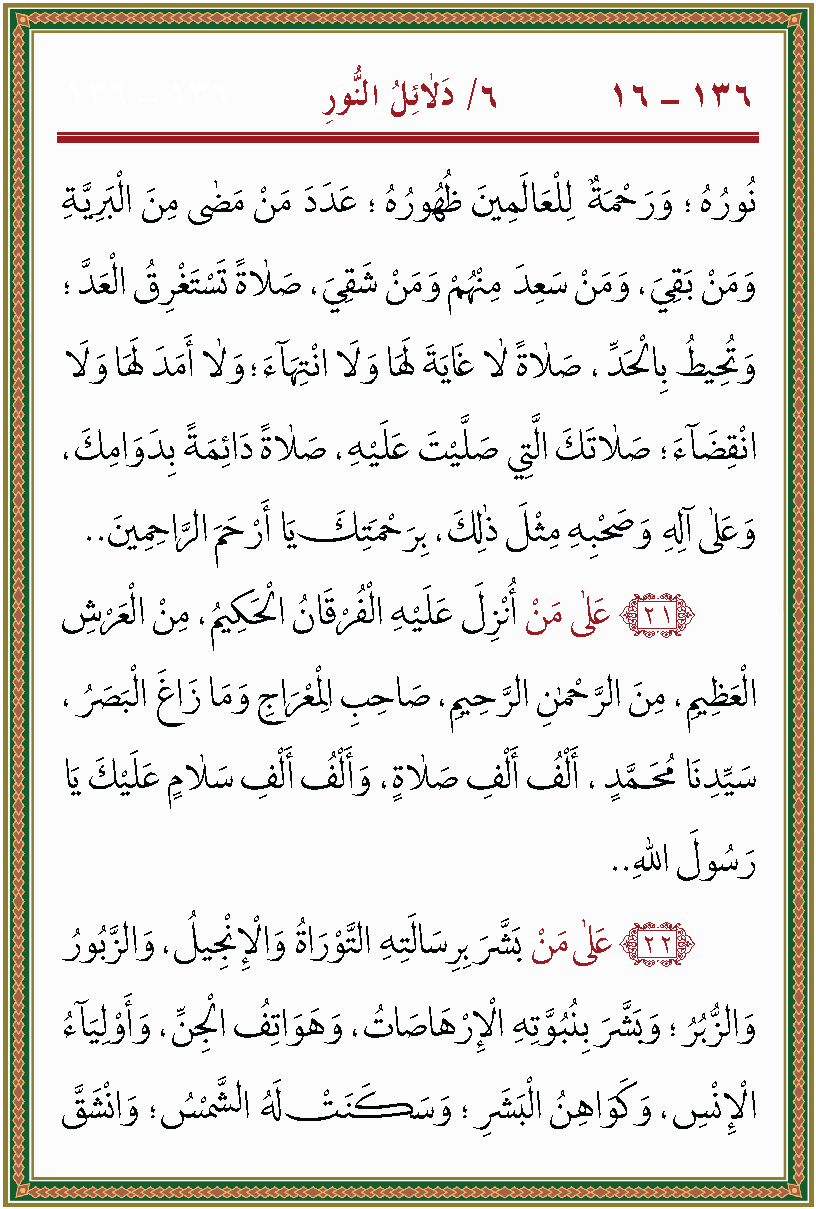 ١٣٦ – ١٦ ٦/ دَلَٓائِلُ النُّورِ ١٣٦ ١٣٦
نُورُهُ ؛ وَرَحْمَةٌ لِلْعَالَمِينَ ظُهُورُهُ ؛ عَدَدَ مَنْ مَضٰى مِنَ الْبَرِيَّةِ
وَمَنْ بَقِيَ، وَمَنْ سَعِدَ مِنْهُمْ وَمَنْ شَقِيَ، صَلَاةً تَسْتَغْرِقُ الْعَدَّ ؛
وَتُحِيطُ بِالْحَدِّ ، صَلَاةً لَا غَايَةَ لَهَا وَلَا انْتِهَٓاءَ؛ وَلَا أَمَدَ لَهَا وَلَا
انْقِضَٓاءَ؛ صَلَاتَكَ الَّتِي صَلَّيْتَ عَلَيْهِ، صَلَاةً دَائِمَةً بِدَوَامِكَ،
وَعَلٰى اٰلِهِ وَصَحْبِهِ مِثْلَ ذٰلِكَ، بِرَحْمَتِكَ يَا أَرْحَمَ الرَّاحِمِينَ..
٢١ عَلٰى مَنْ أُنْزِلَ عَلَيْهِ الْفُرْقَانُ الْحَكِيمُ، مِنْ الْعَرْشِ
الْعَظِيمِ، مِنَ الرَّحْمٰنِ الرَّحِيمِ، صَاحِبِ الْمِعْرَاجِ وَمَا زَاغَ الْبَصَرُ ،
سَيِّدِنَا مُحَمَّدٍ ، أَلْفُ أَلْفِ صَلَاةٍ، وَأَلْفُ أَلْفِ سَلَامٍ عَلَيْكَ يَا
رَسُولَ اللهِ..
٢٢ عَلٰى مَنْ بَشَّرَ بِرِسَالَتِهِ التَّوْرَاةُ وَالْإِنْجِيلُ، وَالزَّبُورُ
وَالزُّبُرُ ؛ وَبَشَّرَ بِنُبُوَّتِهِ الْإِرْهَاصَاتُ، وَهَوَاتِفُ الْجِنِّ، وَأَوْلِيَٓاءُ
الْإِنْسِ، وَكَوَاهِنُ الْبَشَرِ ؛ وَسَكَنَتْ لَهُ الشَّمْسُ؛ وَانْشَقَّ